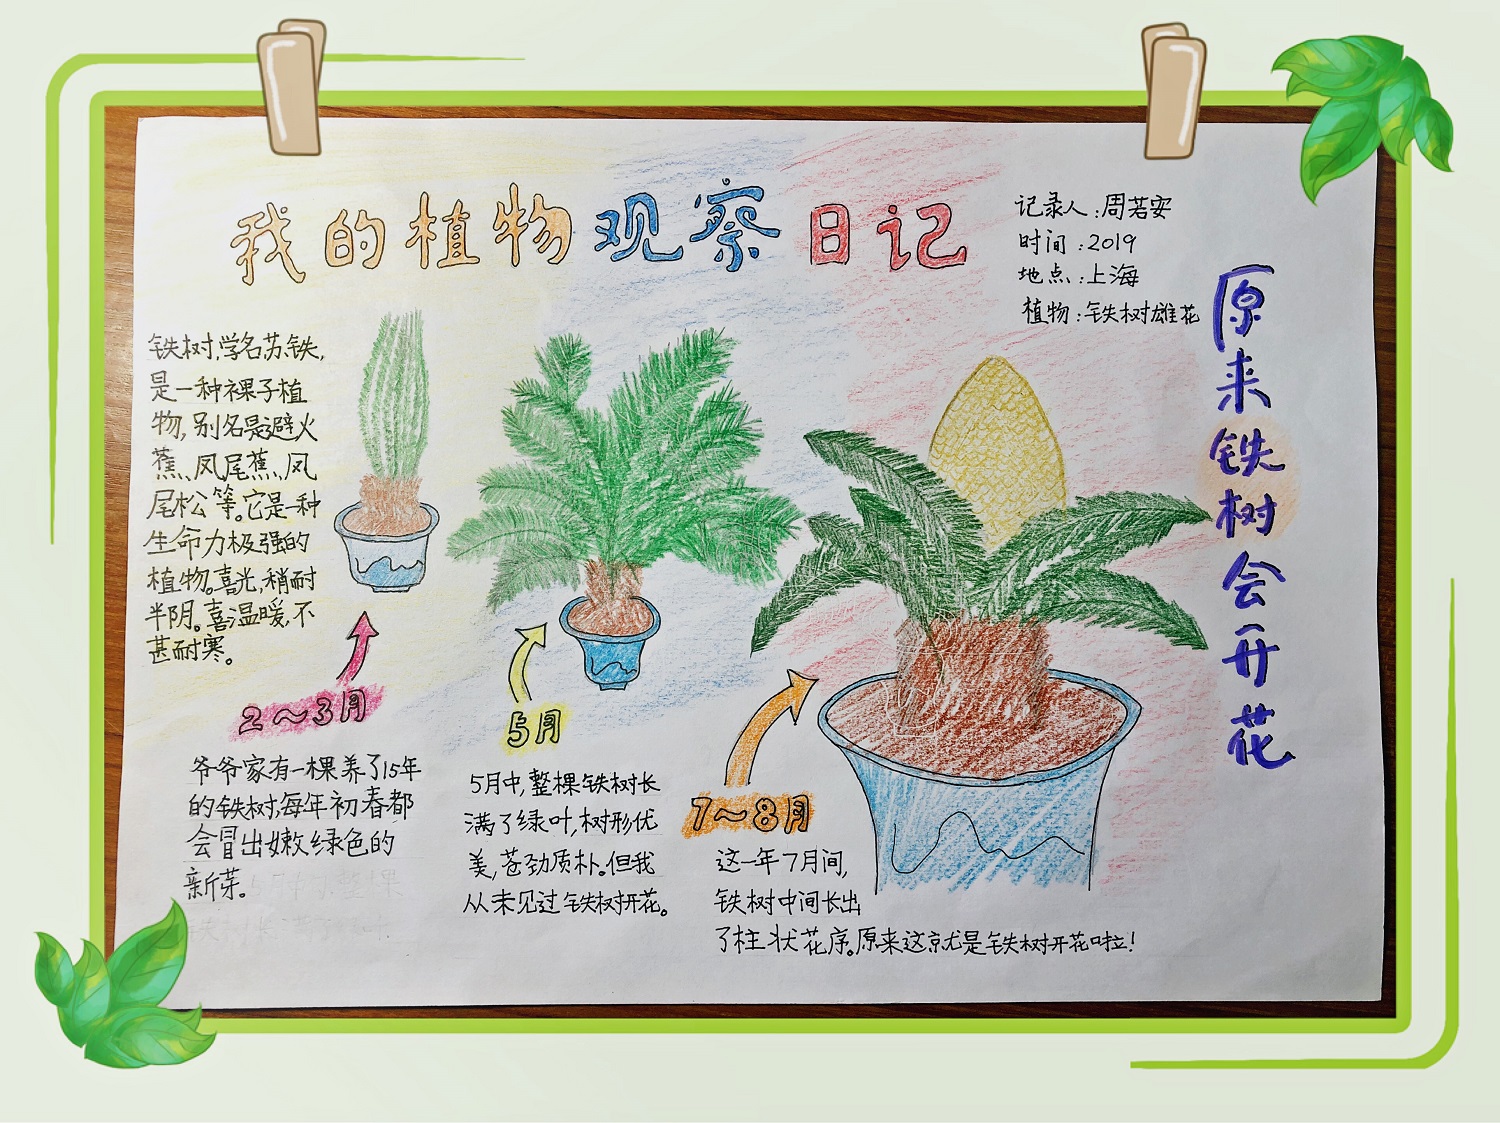 我的植物观察日记
记录人:周若安
时间:2019
地点:上海
植物:铁树雄花
原来铁树会开花
铁树,学名苏铁,
是一种裸子植
物,别名是避火
蕉、凤尾蕉、凤
尾松等。它是一种
生命力极强的
植物。喜光,稍耐
半阴。喜温暖,不
甚耐寒。
2～3月
爷爷家有一棵养了15年
的铁树,每年初春都
会冒出嫩绿色的
新芽。
5月
5月中,整棵铁树长
满了绿叶,树形优
美,苍劲质朴。但我
从未见过铁树开花。
7～8月
这一年7月间,
铁树中间长出
了柱状花序。原来这就是铁树开花啦!